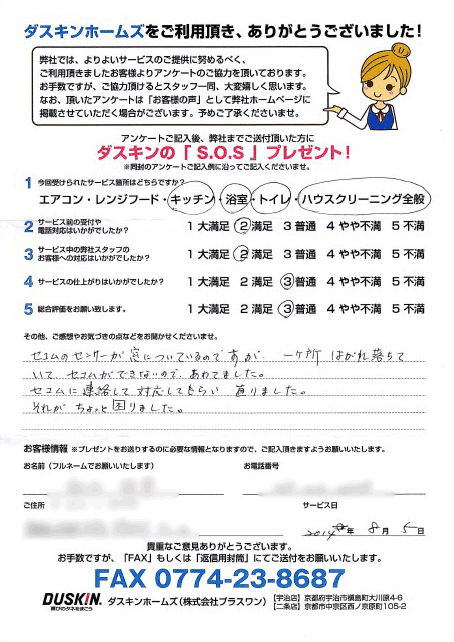 ダスキンホームズをご利用頂き、ありがとうございました!
弊社では、よりよいサービスのご提供に努めるべく、
ご利用頂きましたお客様よりアンケートのご協力を頂いております。
お手数ですが、ご協力頂けるとスタッフ一同、大変嬉しく思います。
なお、頂いたアンケートは「お客様の声」として弊社ホームページに
掲載させていただく場合がございます。予めご了承くださいませ。
アンケートご記入後、弊社までご送付頂いた方に
ダスキンの「 S.O.S 」プレゼント!
※同封のアンケートご記入例に沿ってご記入くださいませ。
1 今回受けられたサービス箇所はどちらですか?
エアコン・レンジフード・キッチン・浴室・トイレ・ハウスクリーニング全般
2 サービス前の受付や
電話対応はいかがでしたか? 1 大満足 2 満足 3 普通 4 やや不満 5 不満
3 サービス中の弊社スタッフの
お客様への対応はいかがでしたか? 1 大満足 2 満足 3 普通 4 やや不満 5 不満
4 サービスの仕上がりはいかがでしたか? 1 大満足 2 満足 3 普通 4 やや不満 5 不満
5 総合評価をお願い致します。 1 大満足 2 満足 3 普通 4 やや不満 5 不満
その他、ご感想やお気づきの点などをお聞かせくださいませ。
セコムのセンサーが窓についているのですが 一ケ所 はがれ落ちて
いて、セコムができないので、あわてました。
セコムに連絡して対応してもらい 直りました。
それが ちょっと困りました。
お客様情報 ※プレゼントをお送りするのに必要な情報となりますので、ご記入頂けますようお願いいたします。
お名前(フルネームでお願いいたします) お電話番号
ご住所 サービス日
2014年 8月 5日
貴重なご意見ありがとうございます。
お手数ですが、「FAX」もしくは「返信用封筒」にてご送付をお願いいたします。
FAX 0774-23-8687
DUSKIN 喜びのタネをまこう ダスキンホームズ(株式会社プラスワン) 【宇治店】京都府宇治市槇島町大川原4-6
【二条店】京都市中京区西ノ京原町105-2